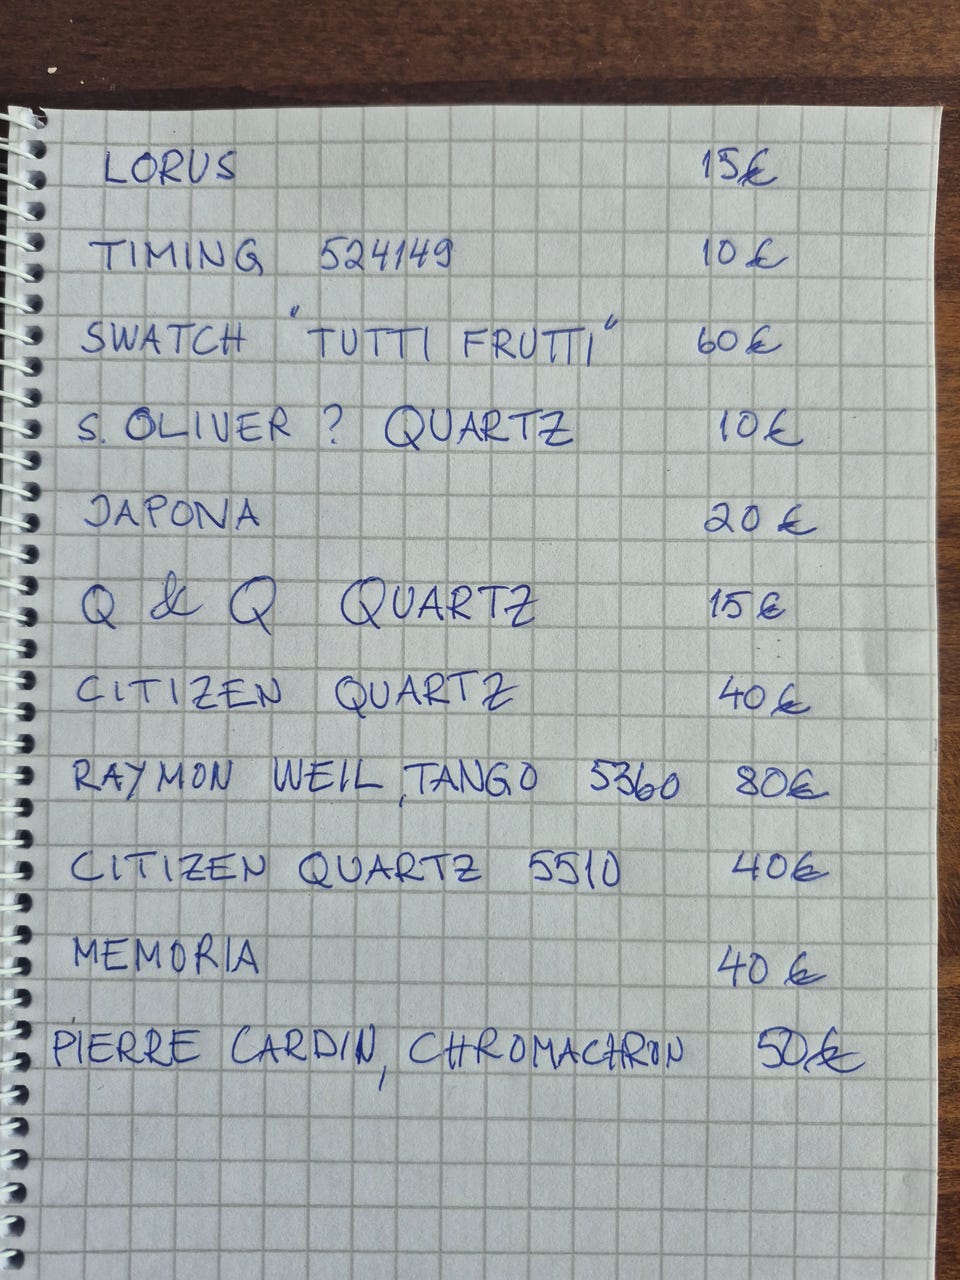 LORUS 15€
TIMING 524149 10€
SWATCH "TUTTI FRUTTI" 60€
S. OLIVER ? QUARTZ 10€
JAPONA 20€
Q & Q QUARTZ 15€
CITIZEN QUARTZ 40€
RAYMON WEIL, TANGO 5360 80€
CITIZEN QUARTZ 5510 40€
MEMORIA 40€
PIERRE CARDIN, CHROMACHRON 50€